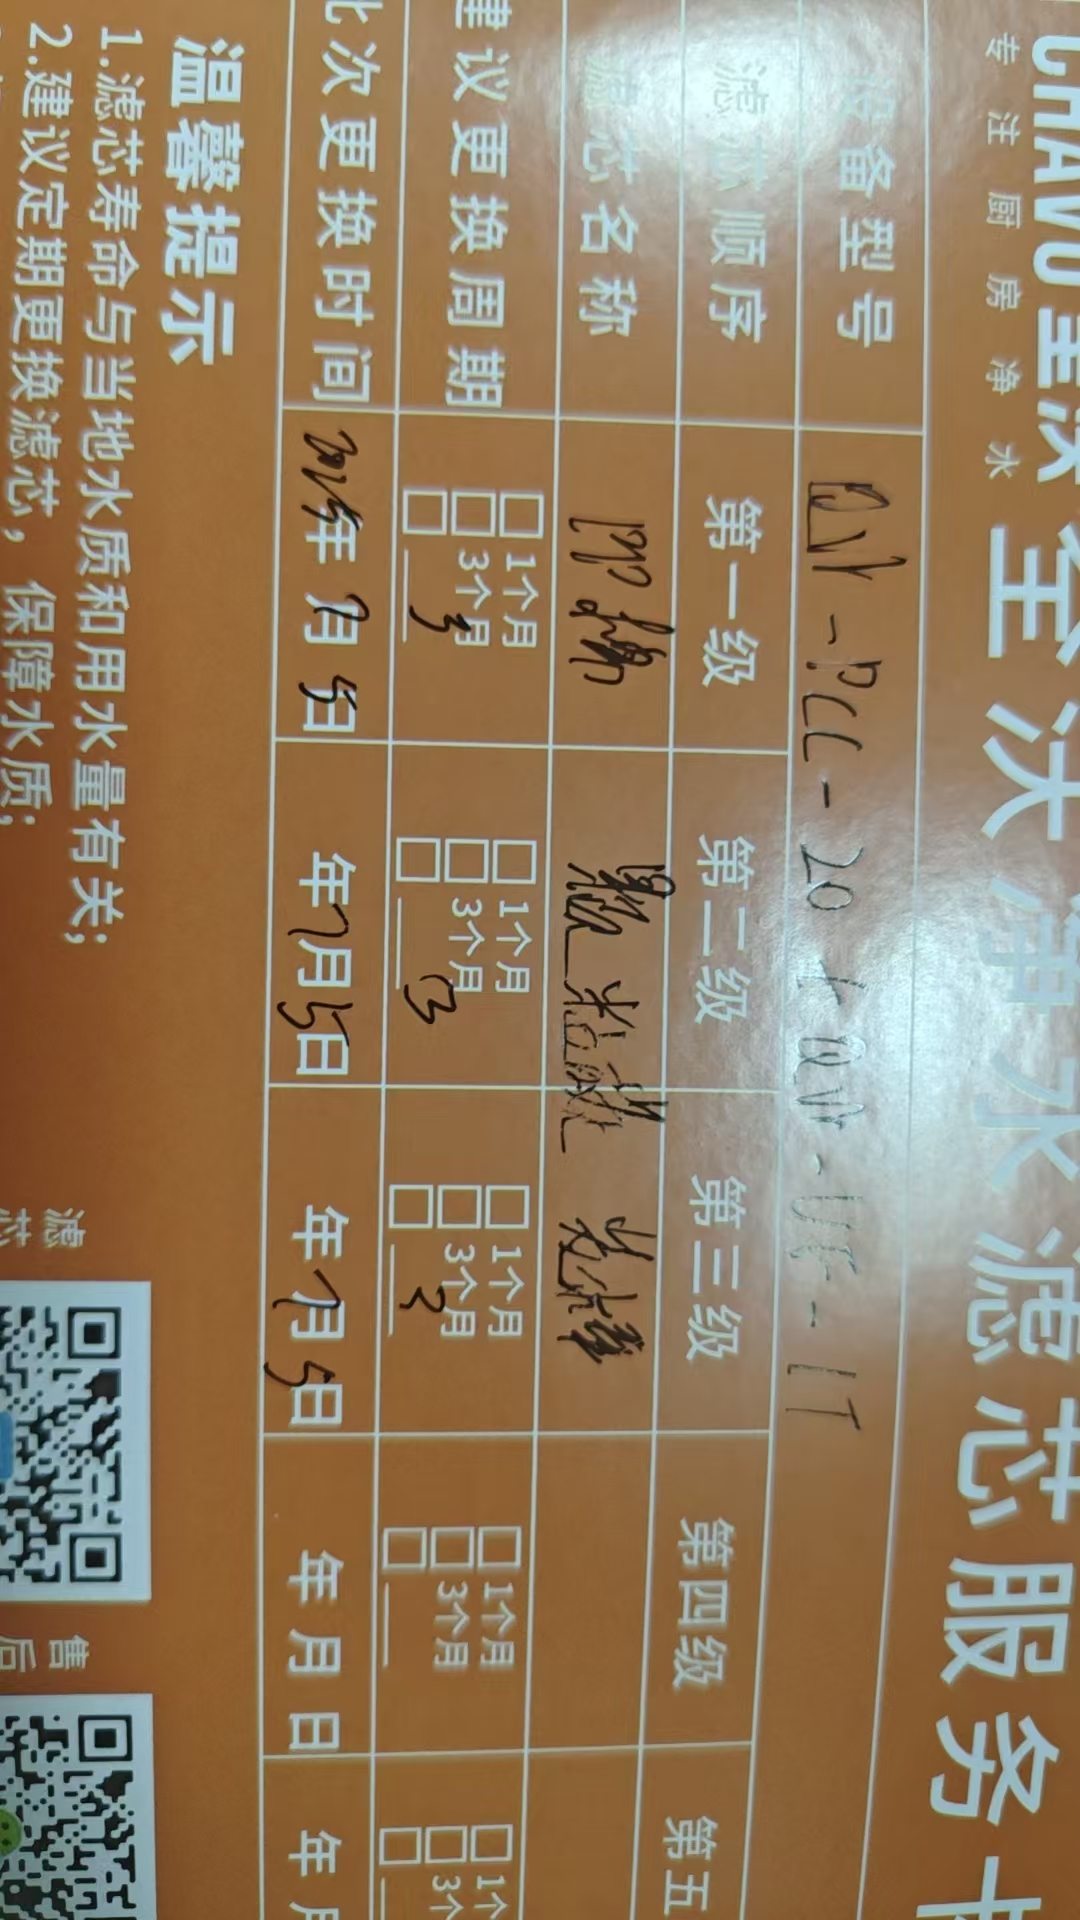 CHAVO全沃 全沃净水滤芯服务卡
专注厨房净水
设备型号 QV-PCC-20+QV-UF-1T
滤芯顺序 第一级 第二级 第三级 第四级 第五
滤芯名称 PP棉 颗粒碳
建议更换周期 □1个月 □1个月 □1个月 □1个月 □1个
□3个月 □3个月 □3个月 □3个月 □3个
□3 □3 □3 □ □
此次更换时间 年7月5日 年7月5日 年7月5日 年 月 日 年 月
温馨提示
1.滤芯寿命与当地水质和用水量有关;
2.建议定期更换滤芯,保障水质;
滤芯
售后